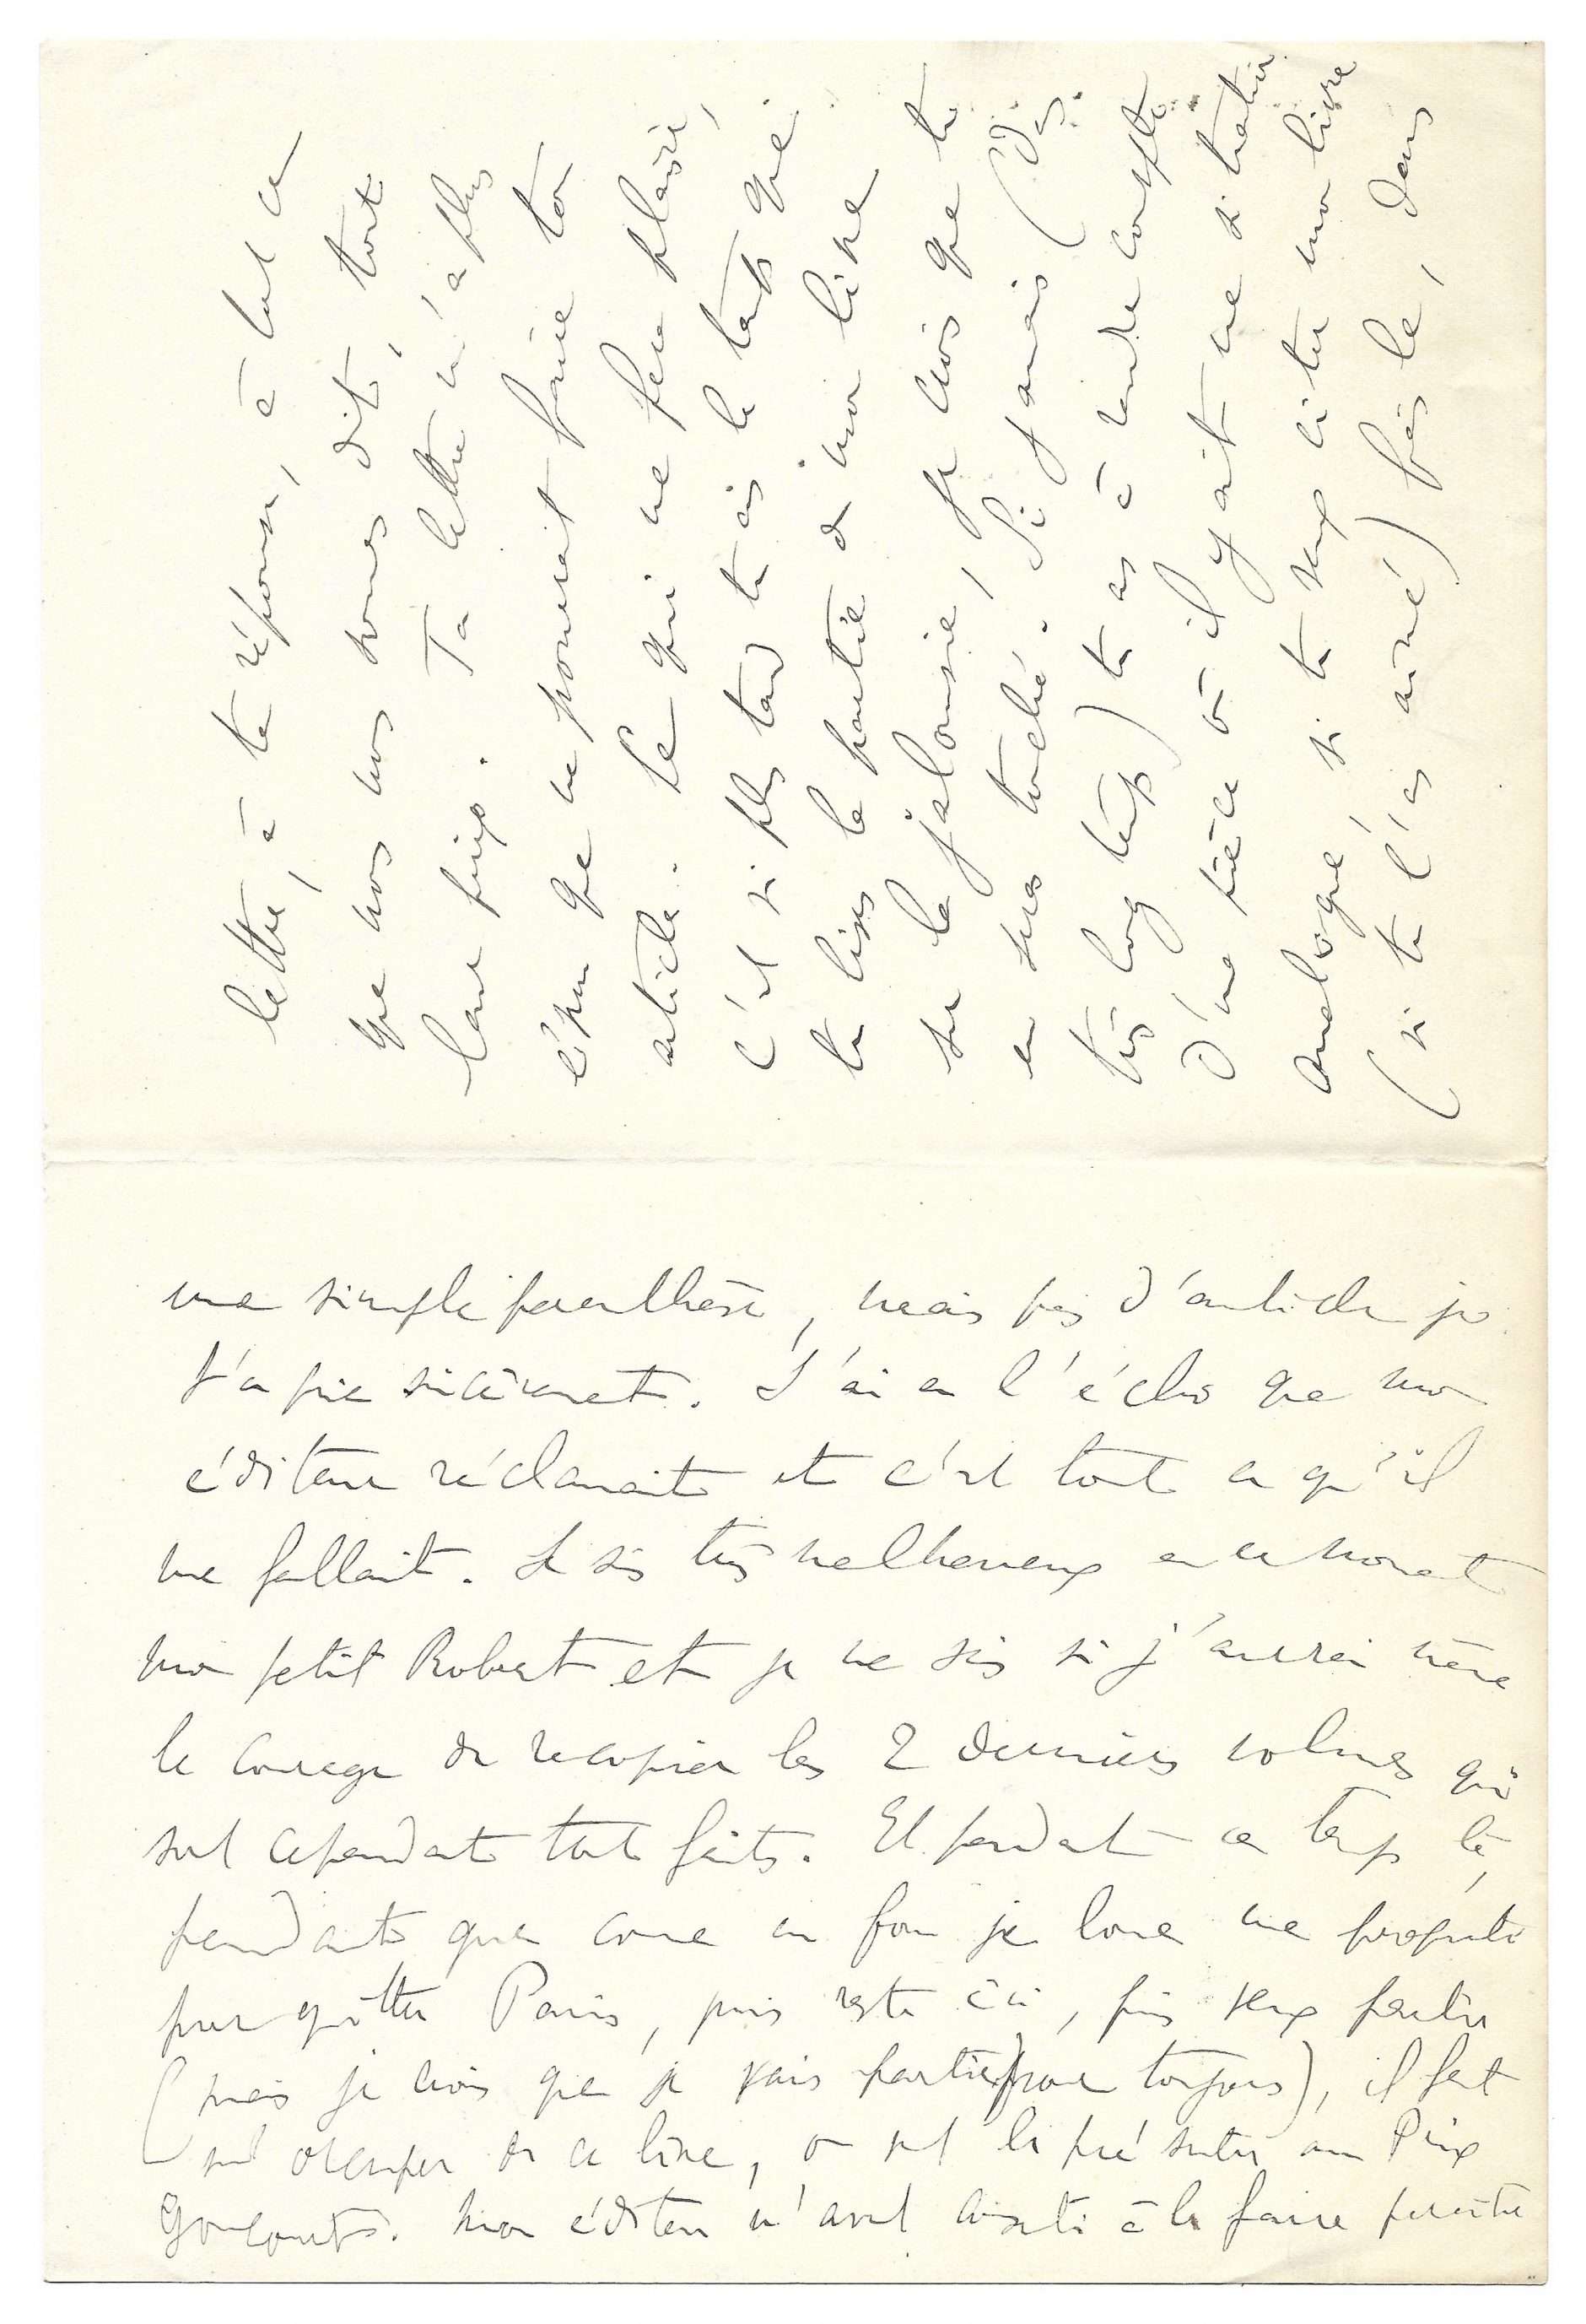 lettre, à ta réponse, à tout ce
que nous nous sommes dit, tout
leur prix. Ta lettre m'a plus
ému que ne pourrait faire ton
article. Ce qui me fera plaisir,
c'est si plus tard tu as le temps que
tu lises la partie de mon livre
sur la jalousie, je crois que tu
en seras touché. Si jamais (dans
très longtemps) tu as à rendre compte
d'une pièce où il y ait une situation
analogue, si tu veux citer mon livre
(si tu l'as aimé) fais le, dans
une simple parenthèse, mais pas d'article je
t'en prie sincèrement. J'ai eu l'écho que mon
éditeur réclamait et c'est tout ce qu'il
me fallait. Je suis très malheureux en ce moment
mon petit Robert et je ne sais si j'aurai même
le courage de recopier les 2 derniers volumes qui
sont cependant tout faits. Et pendant ce temps là,
pendant que comme un fou je loue une propriété
pour quitter Paris, puis reste ici, puis veux partir
(mais je crois que je vais partir pour toujours), il faut
m'occuper de ce livre, on veut le présenter au Prix
Goncourt. Mon éditeur n'avait consenti à le faire paraître